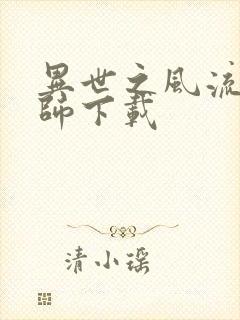 異世之風流
師下載
清小瑶